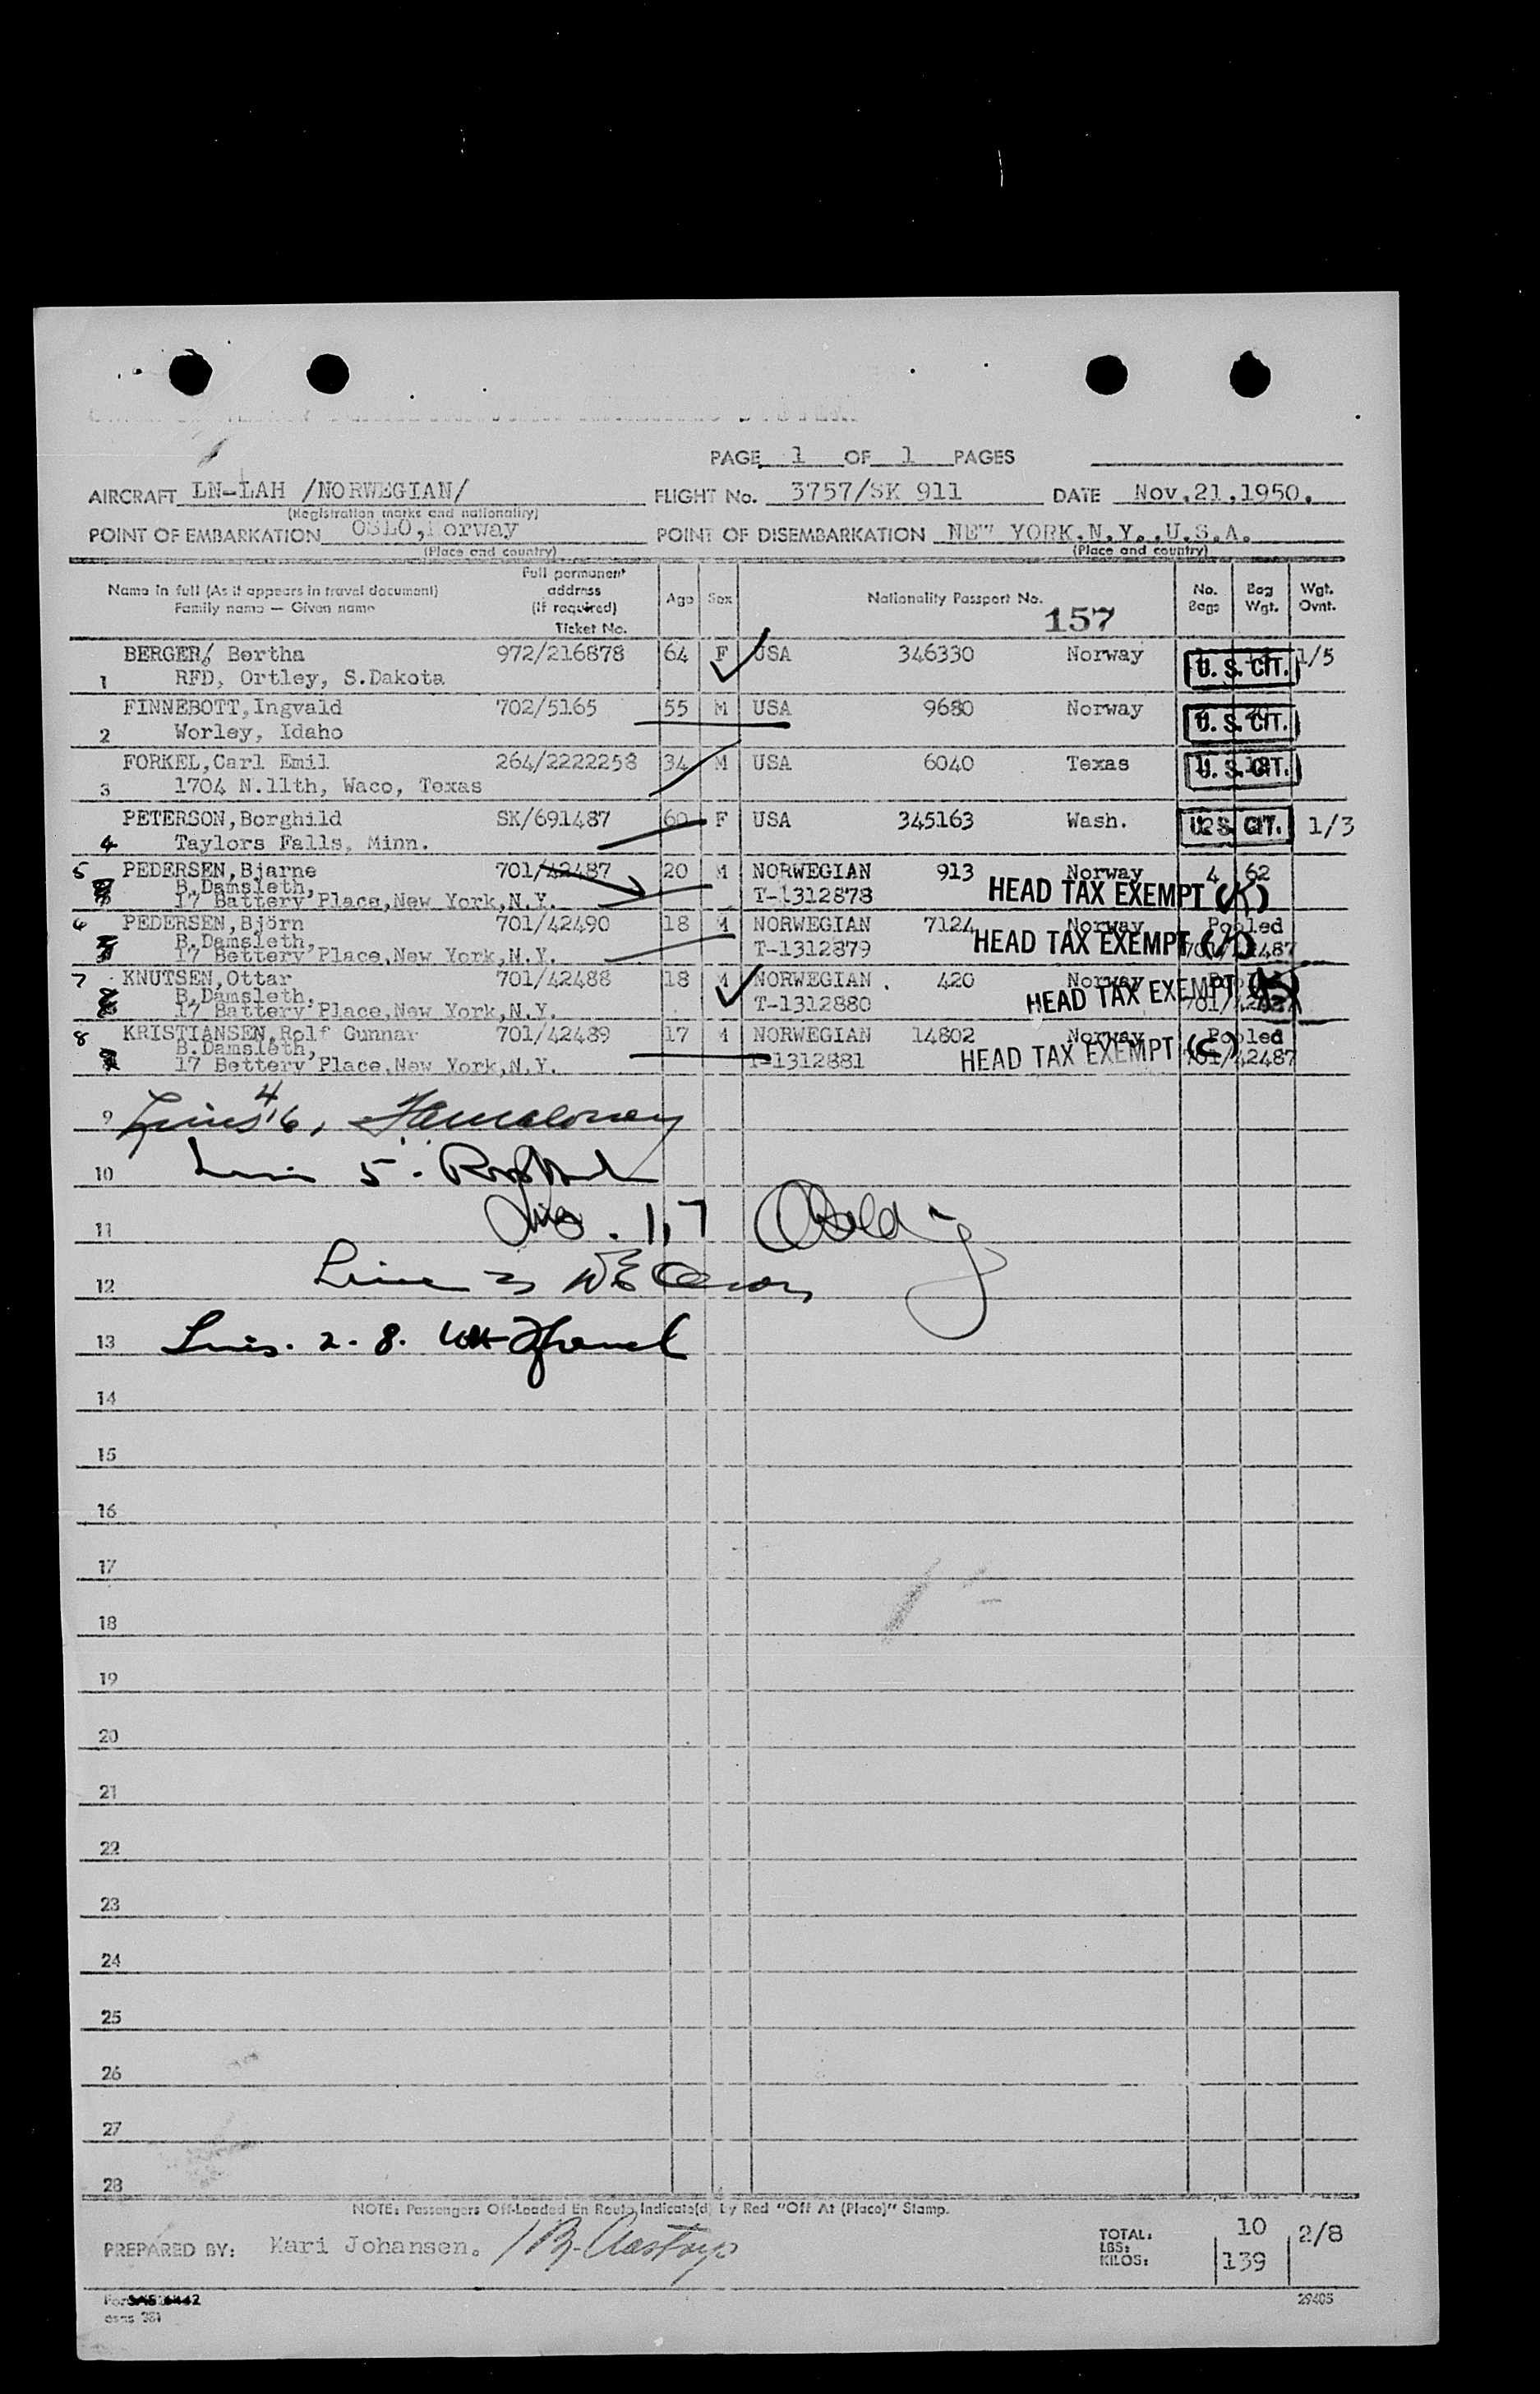 PAGE 1 OF 1 PAGES
AIRCRAFT LN-LAH /NORWEGIAN/ FLIGHT No. 3757/SK 911 DATE Nov.21,1950.
(Registration marks and nationality)
POINT OF EMBARKATION OSLO,Norway POINT OF DISEMBARKATION NEW YORK,N.Y.,U.S.A.
(Place and country) (Place and country)
Name in full (As it appears in travel document) Family name — Given name Full permanent address (If required) Ticket No. Age Sex Nationality Passport No. No. Bags Bag Wgt. Wgt. Ovnt.
157
BERGER, Bertha 972/216878 64 F USA 346330 Norway U. S. CIT. 1/5
1 RFD, Ortley, S.Dakota
FINNEBOTT,Ingvald 702/5165 55 M USA 9680 Norway U. S. CIT.
2 Worley, Idaho
FORKEL,Carl Emil 264/2222258 34 M USA 6040 Texas U. S. CIT.
3 1704 N.11th, Waco, Texas
PETERSON,Borghild SK/691487 60 F USA 345163 Wash. U. S. CIT. 1/3
4 Taylors Falls, Minn.
5 PEDERSEN,Bjarne 701/42487 20 M NORWEGIAN 913 Norway 4 62
B.Damsleth,
17 Battery Place,New York,N.Y. T-1312878 HEAD TAX EXEMPT (K)
6 PEDERSEN,Björn 701/42490 18 M NORWEGIAN 7124 Norway Pooled
B.Damsleth,
17 Bettery Place,New York,N.Y. T-1312879 HEAD TAX EXEMPT 701/42487
7 KNUTSEN,Ottar 701/42488 18 M NORWEGIAN 420 Norway
B.Damsleth,
17 Battery Place,New York,N.Y. T-1312880 HEAD TAX EXEMPT
8 KRISTIANSEN,Rolf Gunnar 701/42489 17 M NORWEGIAN 14802 Norway Pooled
B.Damsleth,
17 Bettery Place,New York,N.Y. T-1312881 HEAD TAX EXEMPT 701/42487
9 Lines 4, 6,
10 5.
11 . 1, 7
12 Line 3
13 Lines. 2 - 8.
14
15
16
17
18
19
20
21
22
23
24
25
26
27
28
NOTE: Passengers Off-Loaded En Route Indicate(d) by Red "Off At (Place)" Stamp.
PREPARED BY: Kari Johansen. TOTAL: LBS: KILOS: 10 139 2/8
SAS 6442 29405